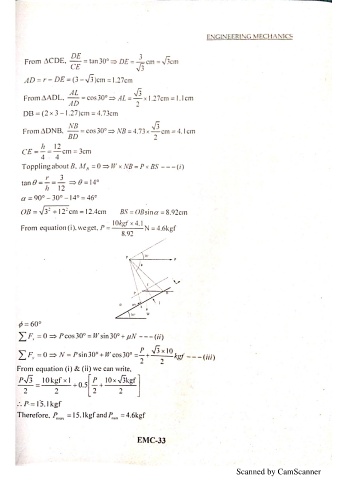 ENGINEERING MECHANICS
From ΔCDE, DE/CE = tan30° ⇒ DE = 3/√3 cm = √3cm
AD = r − DE = (3 − √3)cm = 1.27cm
From ΔADL, AL/AD = cos30° ⇒ AL = √3/2 × 1.27cm = 1.1cm
DB = (2 × 3 − 1.27)cm = 4.73cm
From ΔDNB, NB/BD = cos30° ⇒ NB = 4.73 × √3/2 cm = 4.1cm
CE = h/4 = 12/4 cm = 3cm
Toppling about B, M_B = 0 ⇒ W × NB = P × BS --- (i)
tan θ = r/h = 3/12 ⇒ θ = 14°
α = 90° − 30° − 14° = 46°
OB = √3² + 12² cm = 12.4cm BS = OB sin α = 8.92cm
From equation (i), we get, P = 10kgf × 4.1/8.92 N = 4.6kgf
φ = 60°
∑F_x = 0 ⇒ P cos30° = W sin30° + μN --- (ii)
∑F_y = 0 ⇒ N = P sin30° + W cos30° = P/2 + √3 × 10/2 kgf --- (iii)
From equation (i) & (ii) we can write,
P√3/2 = 10 kgf × 1/2 + 0.5[P/2 + 10 × √3kgf/2]
∴ P = 15.1kgf
Therefore, P_max = 15.1kgf and P_min = 4.6kgf
EMC-33
Scanned by CamScanner